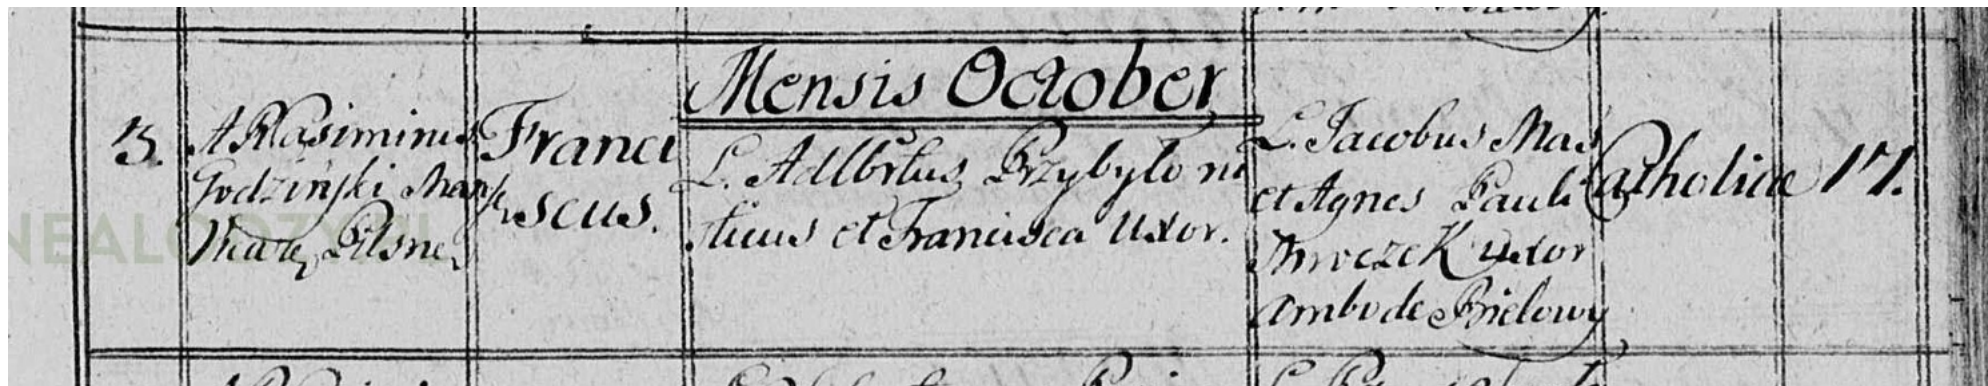 Mensis October
3.
A R Casiminus
Godziński
Pilsne
Franci
scus.
L. Adlbrtus Przybyło ru
sticus et Francisca Uxor.
L. Jacobus Mas
et Agnes Pauli
Mroczek Uxor
ambo de Bielowy
Catholicae
171.